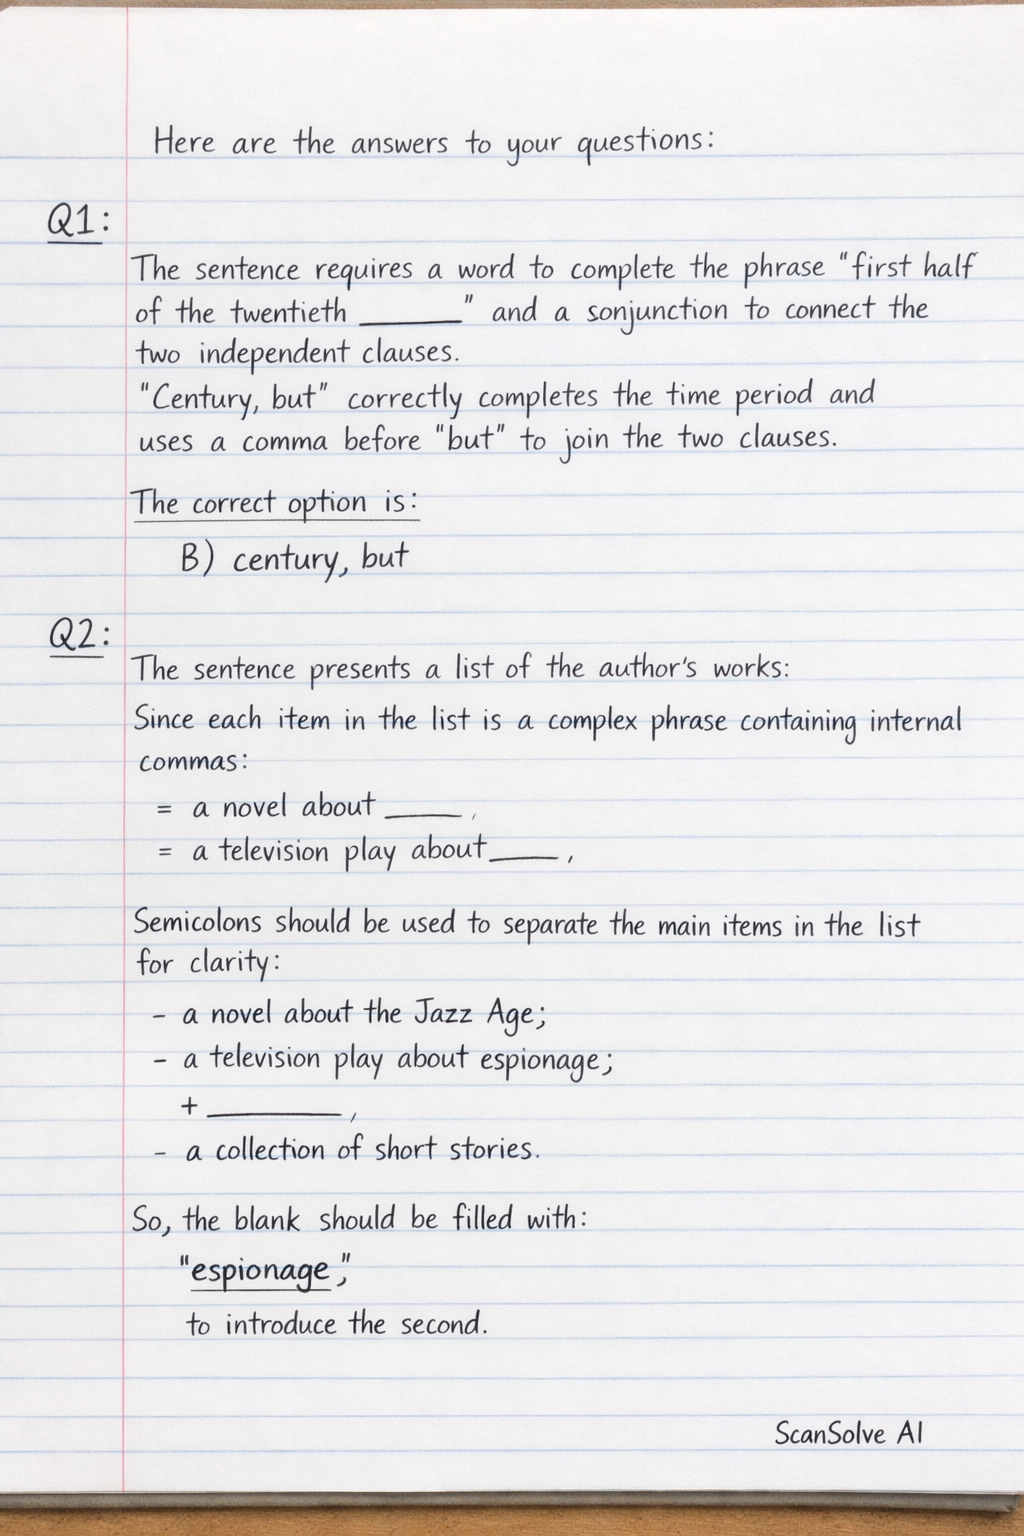 Here are the answers to your questions:
Q1:
The sentence requires a word to complete the phrase "first half
of the twentieth ______" and a sonjunction to connect the
two independent clauses.
"Century, but" correctly completes the time period and
uses a comma before "but" to join the two clauses.
The correct option is:
B) century, but
Q2:
The sentence presents a list of the author's works:
Since each item in the list is a complex phrase containing internal
commas:
= a novel about _____,
= a television play about____,
Semicolons should be used to separate the main items in the list
for clarity:
- a novel about the Jazz Age;
- a television play about espionage;
+ _________,
- a collection of short stories.
So, the blank should be filled with:
"espionage,"
to introduce the second.
ScanSolve AI